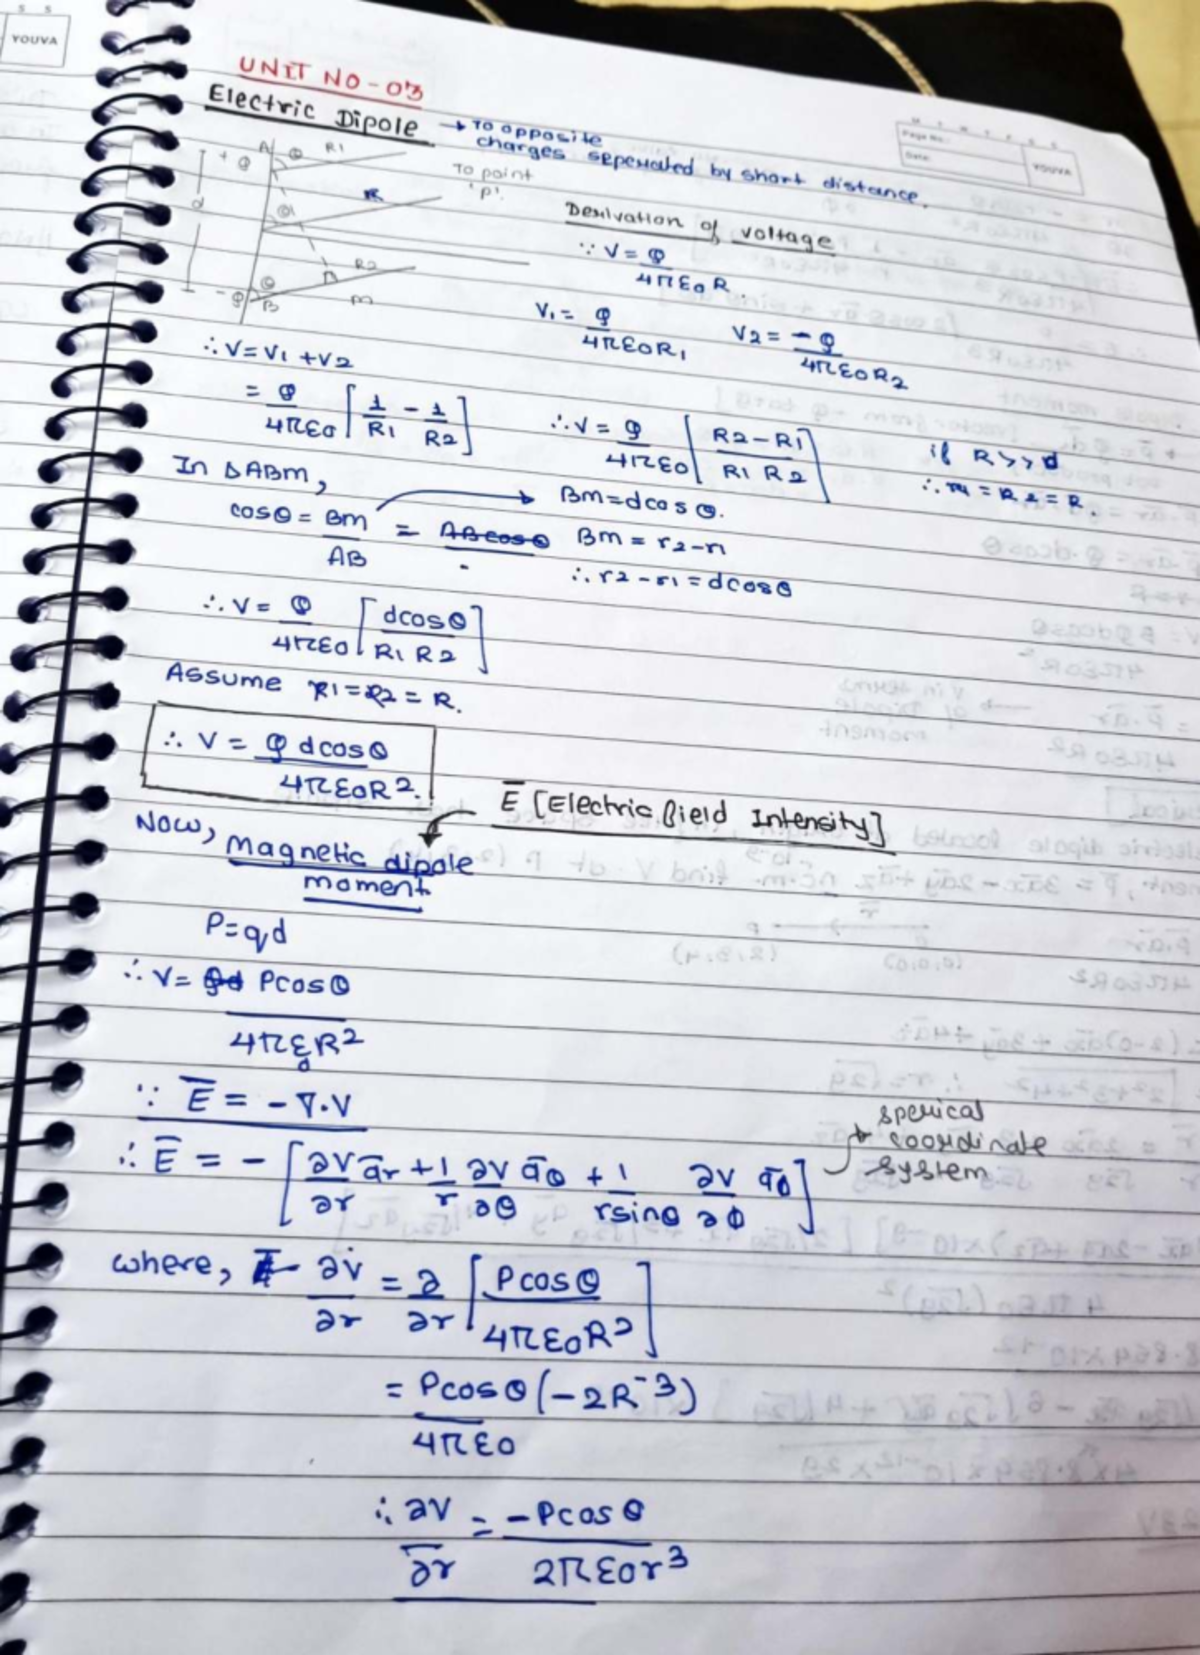 YOUVA
UNIT NO-03
Electric Dipole → To opposite
charges seperated by short distance.
Page No.:
Date:
YOUVA
+Q A θ R1
To point
'P'.
R
d
θ
R2
θ
-Q B m
Derivation of voltage
∵ V = Q / 4πε0 R.
V1 = Q / 4πε0R1 V2 = -Q / 4πε0R2
∴ V = V1 + V2
= Q / 4πε0 [1/R1 - 1/R2] ∴ V = Q / 4πε0 [R2-R1 / R1 R2] if R>>d
In ΔABm, ∴ r1 = R2 = R.
cosθ = Bm / AB = ABcosθ → Bm = dcosθ.
Bm = r2-r1
∴ r2-r1 = dcosθ
∴ V = Q / 4πε0 [dcosθ / R1 R2]
Assume R1=R2=R.
∴ V = Q dcosθ / 4πε0R².
E̅ [Electric field Intensity]
Now, Magnetic dipole
moment.
P=qd
∴ V = Qd Pcosθ / 4πε0R²
∵ E̅ = -∇.V
∴ E̅ = - [∂V/∂r a̅r + 1/r ∂V/∂θ a̅θ + 1/rsinθ ∂V/∂ϕ a̅ϕ]
sperical
coordinate
system
where, ∂V/∂r = ∂/∂r [Pcosθ / 4πε0R²]
= Pcosθ (-2R⁻³) / 4πε0
∴ ∂V/∂r = -Pcosθ / 2πε0r³